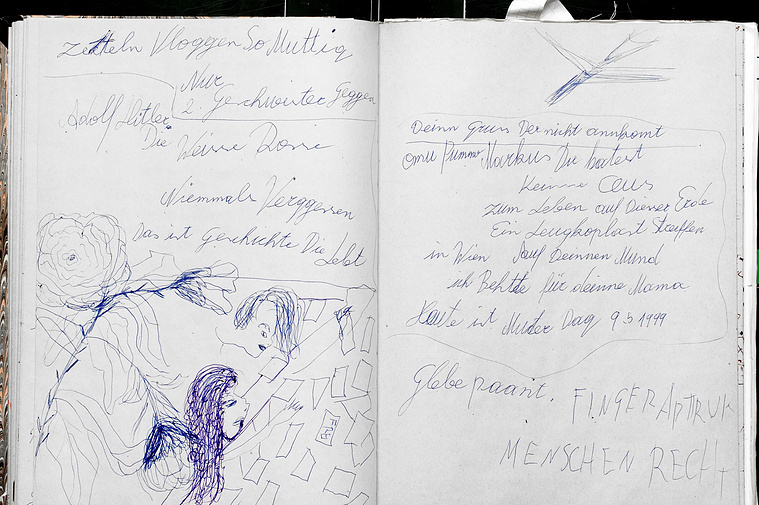 Zetteln Vloggen So Muttig
Nur
2. Geschwister Geggen
Adolf Hitler
Die Weisse Rose
Niemmals Verggessen
Das ist Geschichte Die Lebt
FREI
Deinn Grus Der nicht annkomt
omu Pummo Markus Du hattest
Keinne Caus
zum Leben auf Dieser Erde
Ein Leugkoplast Streiffen
in Wien Auf Deinnen Mund
ich Behtte für deinne Mama
Heute ist Mutter Dag 9 5 1999
Glebe paant.
FINGERAPTRUK
MENSCHEN RECHT